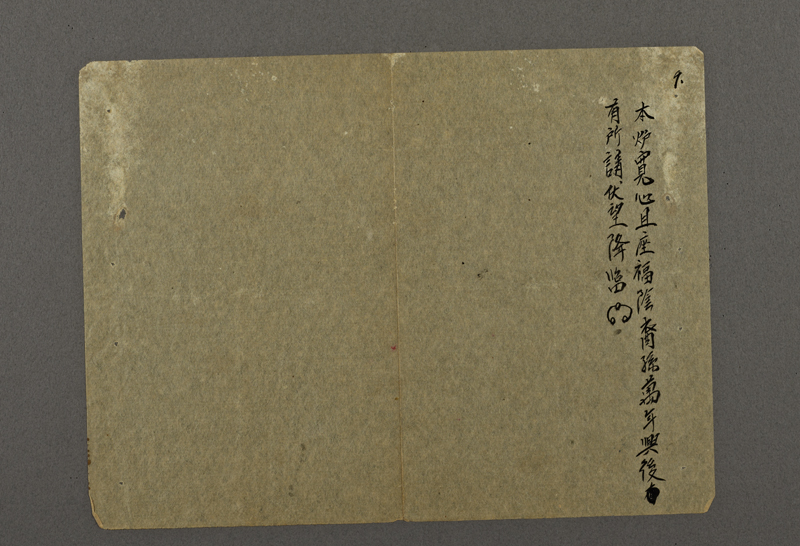 9.
本炉寬心且座福陰裔孫萬年興後
有所請伏望降臨